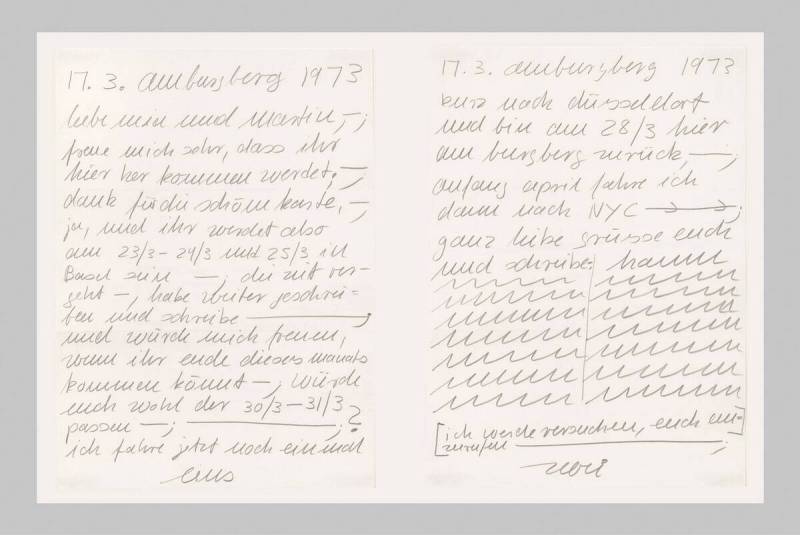 17. 3. am burgberg 1973
liebe mia und martin, —;
freue mich sehr, dass ihr
hier her kommen werdet; —;
dank für die schöne karte, —,
ja, und ihr werdet also
am 23/3 - 24/3 und 25/3 in
Basel sein —; die zeit ver-
geht —, habe weiter geschrie-
ben und schreibe ———;
und würde mich freuen,
wenn ihr ende dieses monats
kommen könnt —; würde
euch wohl der 30/3 — 31/3
passen —; ———; ?
ich fahre jetzt noch einmal
eins
17. 3. am burgberg 1973
kurz nach düsseldorf
und bin am 28/3 hier
am burgberg zurück, —;
anfang april fahre ich
dann nach NYC →→;
ganz liebe grüsse euch
und schreibe: hanne
[ich werde versuchen, euch an=]
zurufen ———;
zwei